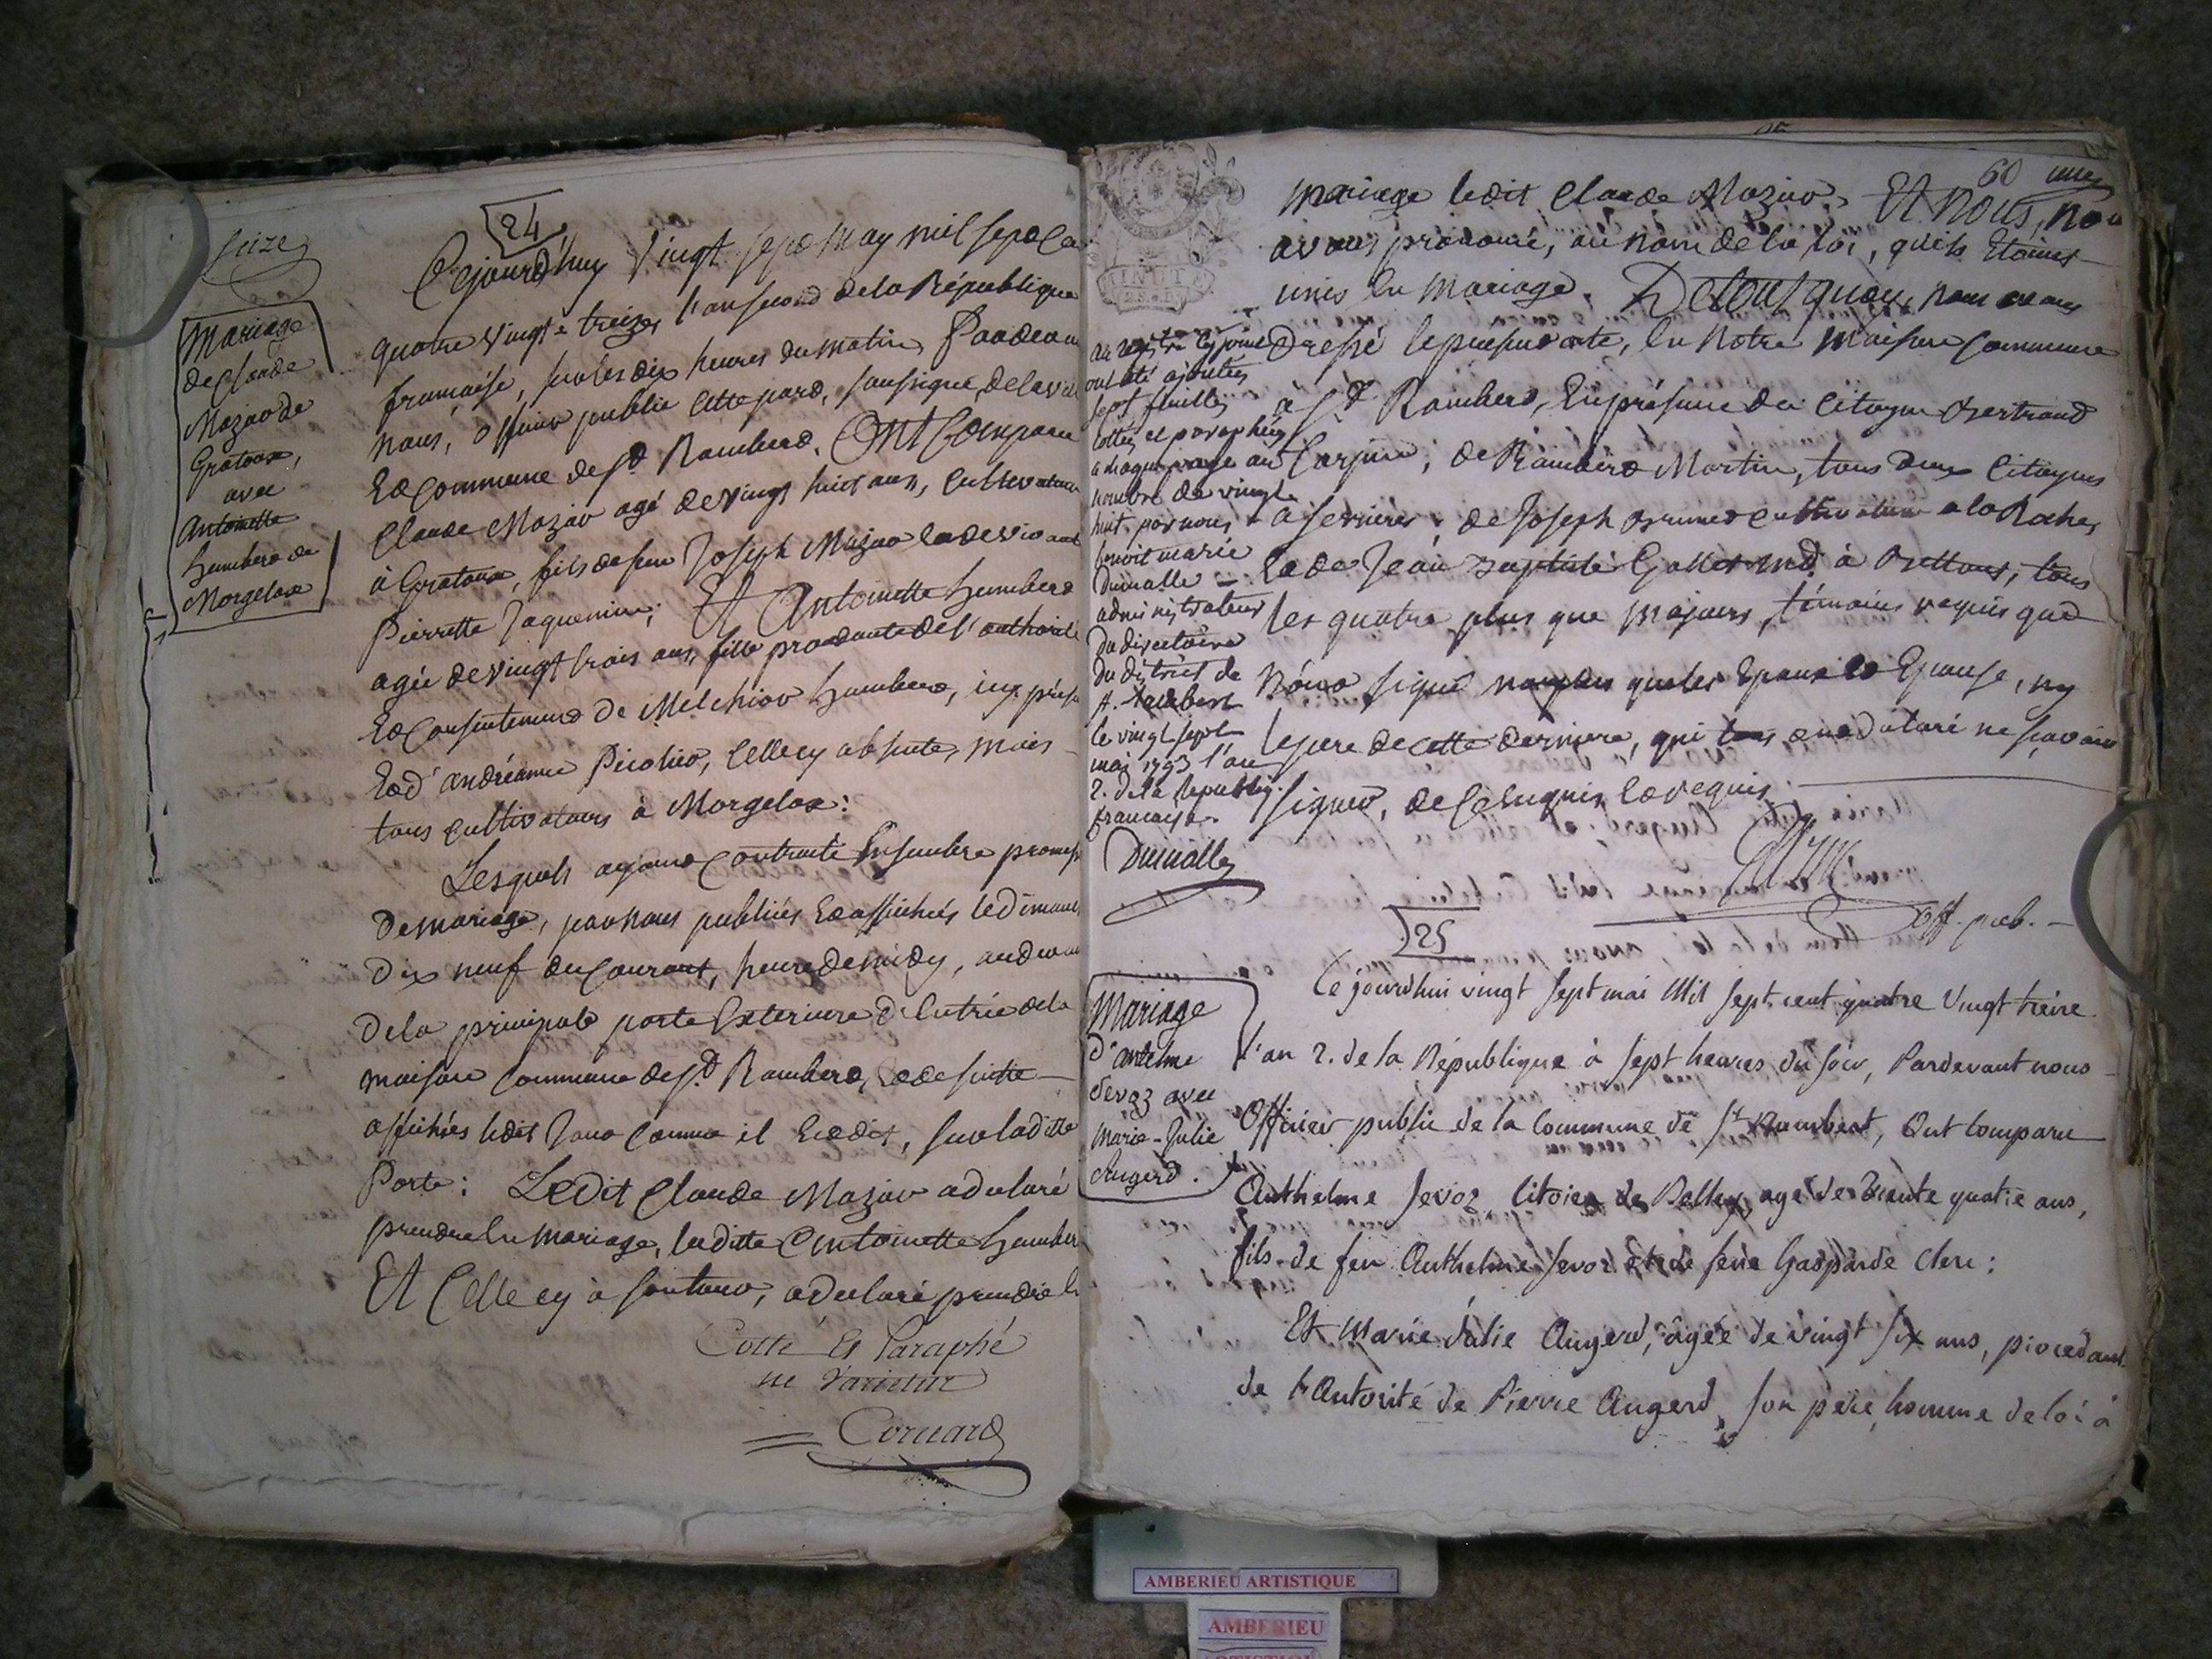 seize
24
Mariage
de Claude
Mazar de
Gratoux,
avec
Antoinette
humbert de
Morgelas
Cejourd'huy vingt sept may mil sept ce
quatre vingt treize, l'an second de la République
francaise, sur les dix heures du matin, Pardevan
nous, officier public cette part, soussigné, de la
Et Commune de St Rambert. Ont Comparu
Claude Mazar agé de vingt huit ans, cultivateur
à Gratoux, fils de feu Joseph Mazar Et de vivant
Pierrette Jaquemin; Et Antoinette humbert
agée de vingt trois ans, fille procedante de l'authorité
Et Consentement de Melchior humbert, icy prése
Et d'andréanne Picolier, Celle cy absente, mais
tous cultivateurs à Morgelas:
Lesquels ayant Contracté Ensembre promess
de mariage, par nous publiées Et affichées le dimanc
dix neuf du Courant, heure de midy, au devan
de la principale porte Exterieure d'Entrée de la
maison Commune de St Rambert, Et de suitte
affichées ledit Jour Comme il Est dit, sur laditte
Porte: Ledit Claude Mazar a declaré
prendre En mariage, laditte Antoinette humber
Et Celle cy à son tour, a declaré prendre E
Cotté Et Paraphé
ne Varietur
Cornard
60
mariage ledit Claude Mazar. Et Nous, nou
avons prononcé, au nom de la loi, qu'ils Etoient
unis En Mariage. De tout quoy, nous avons
Dressé le présent acte, En Notre maison Commune
à St Rambert, En présence du Citoyen Bertrand
Carjin, de Rambert Martin, tous deux Citoyens
a Serrières, de Joseph Brunet cultivateur a la Roche,
Et de Jean Baptiste Gallet md à Bettant, tous
les quatre plus que majeurs, témoins requis qui
N'ont signé non plus que les Epoux et Epouse, ny
le pere de cette derniere, qui tous ont declaré ne sçavoir
signer, de Ce Enquis Et requis.
off. pub.
au registre cy joint
ont été ajoutées
sept feuilles
cottées et paraphées
a chaque page au
nombre de vingt
huit, par nous
benoit marie
Dumalle
administrateur
du directoire
du district de
st. rambert
le vingt sept
mai 1793 l'an
2. de la republiq.
francaise.
Dumalle
25
Mariage
d'antelme
Sevoz avec
marie-Julie
Augerd.
Ce jourd'hui vingt sept mai Mil sept cent quatre Vingt treize
l'an 2. de la République à sept heures du soir, Pardevant nous
Officier public de la Commune de St Rambert, Ont Comparu
Anthelme Sevoz, Citoien de Belley, agé de trente quatre ans,
fils de feu Anthelme Sevoz et de feue Gasparde Clerc:
Et Marie Julie Augerd, âgée de vingt six ans, procedant
de l'Autorité de Pierre Augerd, son père, homme de loi à
AMBERIEU ARTISTIQUE
AMBERIEU